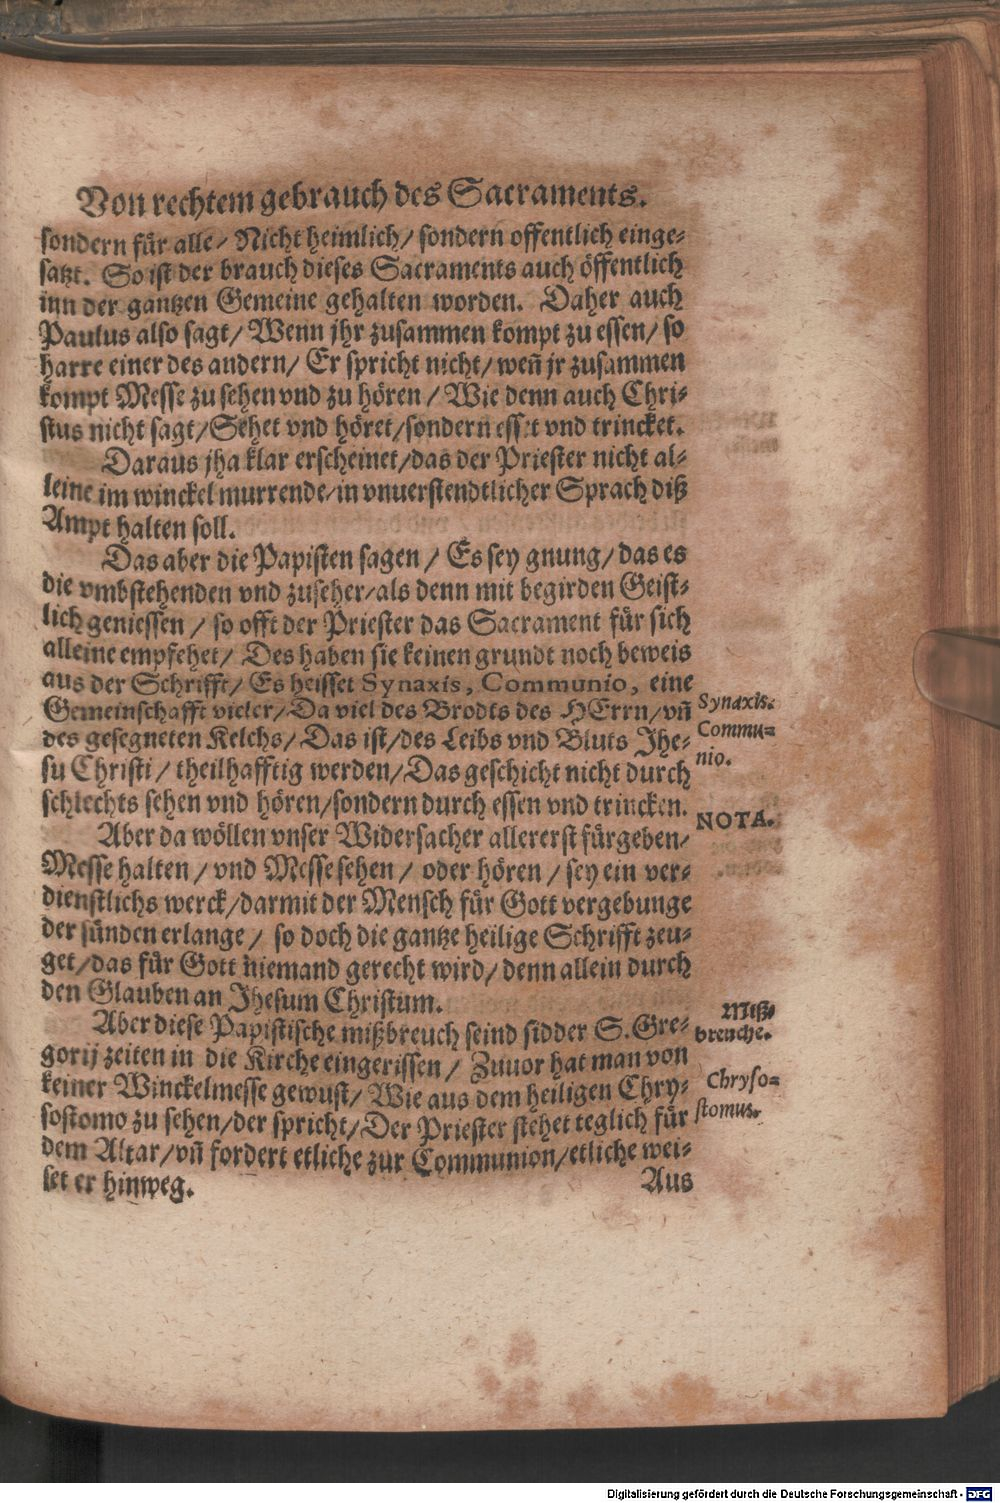 Von rechtem gebrauch des Sacraments.
sondern für alle/ Nicht heimlich/ sondern offentlich einge-
satzt. So ist der brauch dieses Sacraments auch öffentlich
inn der gantzen Gemeine gehalten worden. Daher auch
Paulus also sagt/ Wenn jhr zusammen kompt zu essen/ so
harre einer des andern/ Er spricht nicht/ weñ jr zusammen
kompt Messe zu sehen vnd zu hören/ Wie denn auch Chri-
stus nicht sagt/ Sehet vnd höret/ sondern esset vnd trincket.
Daraus jha klar erscheinet/ das der Priester nicht al-
leine im winckel murrende/ in vnuerstendtlicher Sprach diß
Ampt halten soll.
Das aber die Papisten sagen/ Es sey gnung/ das es
die vmbstehenden vnd zuseher/ als denn mit begirden Geist-
lich geniessen/ so offt der Priester das Sacrament für sich
alleine empfehet/ Des haben sie keinen grundt noch beweis
aus der Schrifft/ Es heisset Synaxis, Communio, eine
Gemeinschafft vieler/ Da viel des Brodts des HErrn/ vñ
des gesegneten Kelchs/ Das ist/ des Leibs vnd Bluts Jhe-
su Christi/ theilhafftig werden/ Das geschicht nicht durch
schlechts sehen vnd hören/ sondern durch essen vnd trincken.
Aber da wöllen vnser Widersacher allererst fürgeben/
Messe halten/ vnd Messe sehen/ oder hören/ sey ein ver-
dienstlichs werck/ darmit der Mensch für Gott vergebunge
der sünden erlange/ so doch die gantze heilige Schrifft zeu-
get/ das für Gott niemand gerecht wird/ denn allein durch
den Glauben an Jhesum Christum.
Aber diese Papistische mißbreuch seind sidder S. Gre-
gorij zeiten in die Kirche eingerissen/ Zuuor hat man von
keiner Winckelmesse gewust/ Wie aus dem heiligen Chry-
sostomo zu sehen/ der spricht/ Der Priester stehet teglich für
dem Altar/ vñ fordert etliche zur Communion/ etliche wei-
set er hinweg.
Aus
Synaxis.
Commu-
nio.
NOTA.
Miß-
breuche.
Chryso-
stomus.
Digitalisierung gefördert durch die Deutsche Forschungsgemeinschaft - DFG